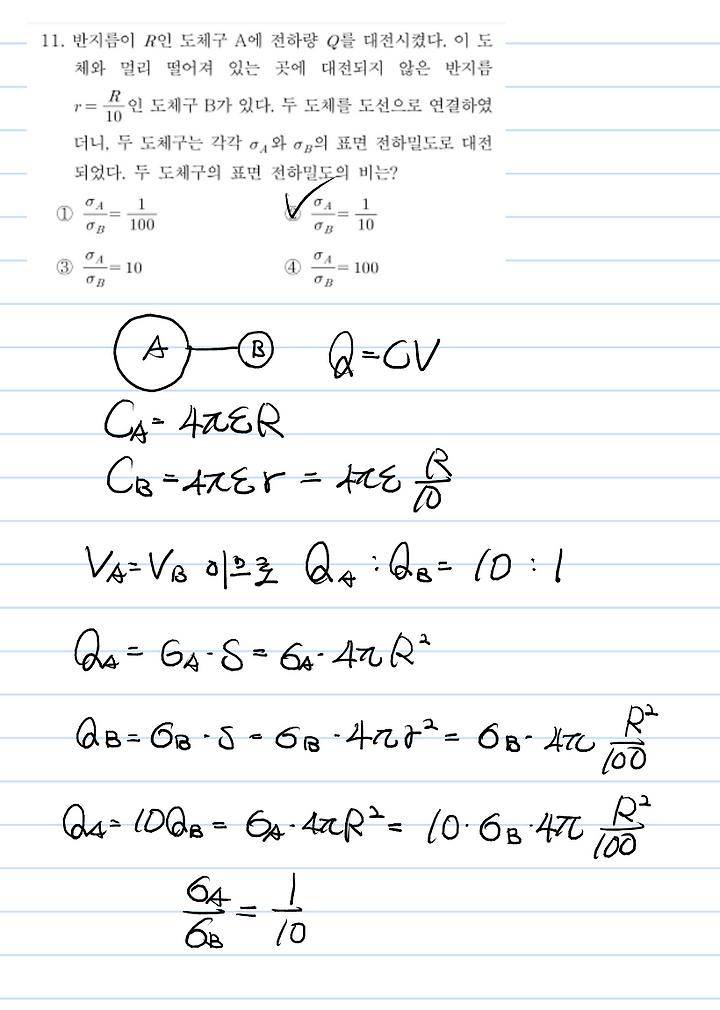 11. 반지름이 R인 도체구 A에 전하량 Q를 대전시켰다. 이 도
체와 멀리 떨어져 있는 곳에 대전되지 않은 반지름
r = R/10 인 도체구 B가 있다. 두 도체를 도선으로 연결하였
더니, 두 도체구는 각각 σ_A와 σ_B의 표면 전하밀도로 대전
되었다. 두 도체구의 표면 전하밀도의 비는?
① σ_A/σ_B = 1/100 ② σ_A/σ_B = 1/10
③ σ_A/σ_B = 10 ④ σ_A/σ_B = 100
A B Q = CV
C_A = 4πεR
C_B = 4πεr = 4πε R/10
V_A = V_B 이므로 Q_A : Q_B = 10 : 1
Q_A = σ_A · S = σ_A · 4πR²
Q_B = σ_B · S = σ_B · 4πr² = σ_B · 4π R²/100
Q_A = 10Q_B = σ_A · 4πR² = 10 · σ_B · 4π R²/100
σ_A/σ_B = 1/10